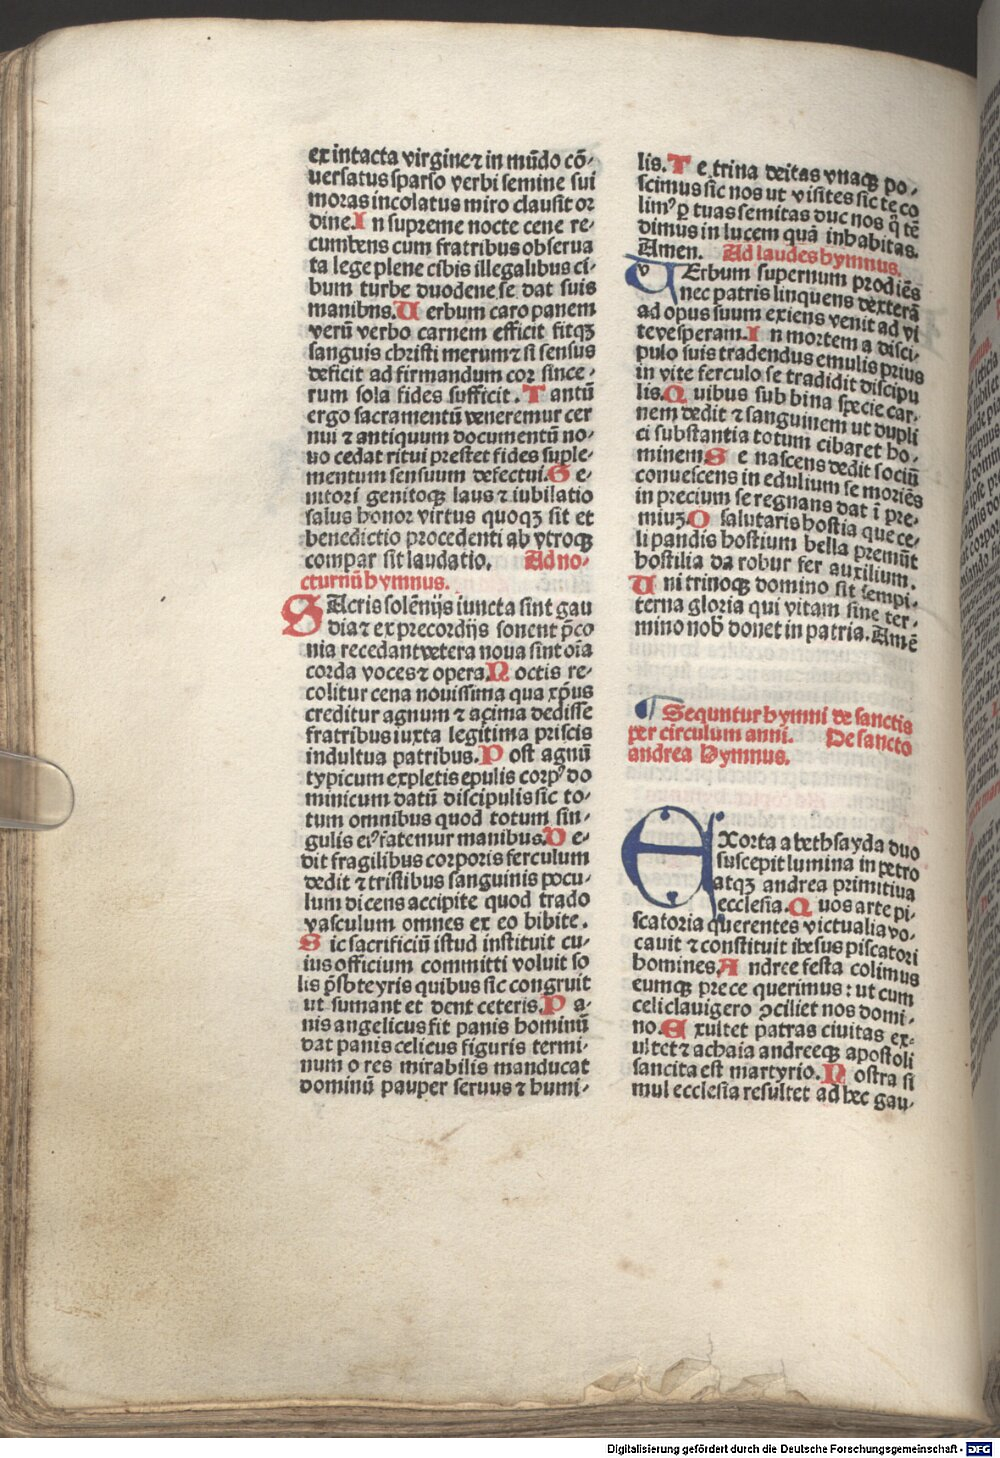 ex intacta virgine ⁊ in mūdo cō⸗
uersatus sparso verbi semine sui
moras incolatus miro clausit or
dine. In supreme nocte cene re⸗
cumbens cum fratribus obserua
ta lege plene cibis illegalibus ci⸗
bum turbe duodene se dat suis
manibns. Uerbum caro panem
verū verbo carnem efficit fitqꝫ
sanguis christi merum ⁊ si sensus
deficit ad firmandum cor since⸗
rum sola fides sufficit. Tantū
ergo sacramentū veneremur cer
nui ⁊ antiquum documentū no⸗
uo cedat ritui prestet fides suple⸗
mentum sensuum defectui. Ge⸗
nitori genitoqꝫ laus ⁊ iubilatio
salus honor virtus quoqꝫ sit et
benedictio procedenti ab vtroqꝫ
compar sit laudatio. Ad no⸗
cturnū hymnus.
SAcris solēnijs iuncta sint gau
dia ⁊ ex precordijs sonent p̄co
nia recedant vetera noua sint oīa
corda voces ⁊ opera. Noctis re⸗
colitur cena nouissima qua xp̄us
creditur agnum ⁊ açima dedisse
fratribus iuxta legitima priscis
indultua patribus. Post agnū
typicum expletis epulis corpꝰ do
minicum datū discipulis sic to⸗
tum omnibus quod totum sin⸗
gulis eiꝰ fatemur manibus. De⸗
dit fragilibus corporis ferculum
dedit ⁊ tristibus sanguinis pocu⸗
lum dicens accipite quod trado
vasculum omnes ex eo bibite.
Sic sacrificiū istud instituit cu⸗
ius officium committi voluit so
lis p̄sbteyris quibus sic congruit
ut sumant et dent ceteris. Pa⸗
nis angelicus fit panis hominū
dat panis celicus figuris termi⸗
num o res mirabilis manducat
dominū pauper seruus ⁊ humi⸗
lis. Te trina deitas vnaqꝫ po⸗
scimus sic nos ut visites sic te co
limꝰ ꝑ tuas semitas duc nos q̄ tē
dimus in lucem quā inhabitas.
Amen. Ad laudes hymnus.
VErbum supernum prodiēs
nec patris linquens dexterā
ad opus suum exiens venit ad vi
te vesperam. In mortem a disci⸗
pulo suis tradendus emulis prius
in vite ferculo se tradidit discipu
lis. Quibus sub bina specie car⸗
nem dedit ⁊ sanguinem ut dupli
ci substantia totum cibaret ho⸗
minem. Se nascens dedit sociū
conuescens in edulium se moriēs
in precium se regnans dat ī pre⸗
miuꝫ. O salutaris hostia que ce⸗
li pandis hostium bella premūt
hostilia da robur fer auxilium.
Uni trinoqꝫ domino sit sempi⸗
terna gloria qui vitam sine ter⸗
mino nob̄ donet in patria. Amē
Sequntur hymni de sanctis
per circulum anni. De sancto
andrea Hymnus.
EXorta a bethsayda duo
suscepit lumina in petro
atqꝫ andrea primitiua
ecclesia. Quos arte pi⸗
scatoria querentes victualia vo⸗
cauit ⁊ constituit ihesus piscatori
homines. Andree festa colimus
eumqꝫ prece querimus: ut cum
celi clauigero ꝯciliet nos domi⸗
no. Exultet patras ciuitas ex⸗
ultet ⁊ achaia andreeqꝫ apostoli
sancita est martyrio. Nostra si
mul ecclesia resultet ad hec gau⸗
Digitalisierung gefördert durch die Deutsche Forschungsgemeinschaft - DFG